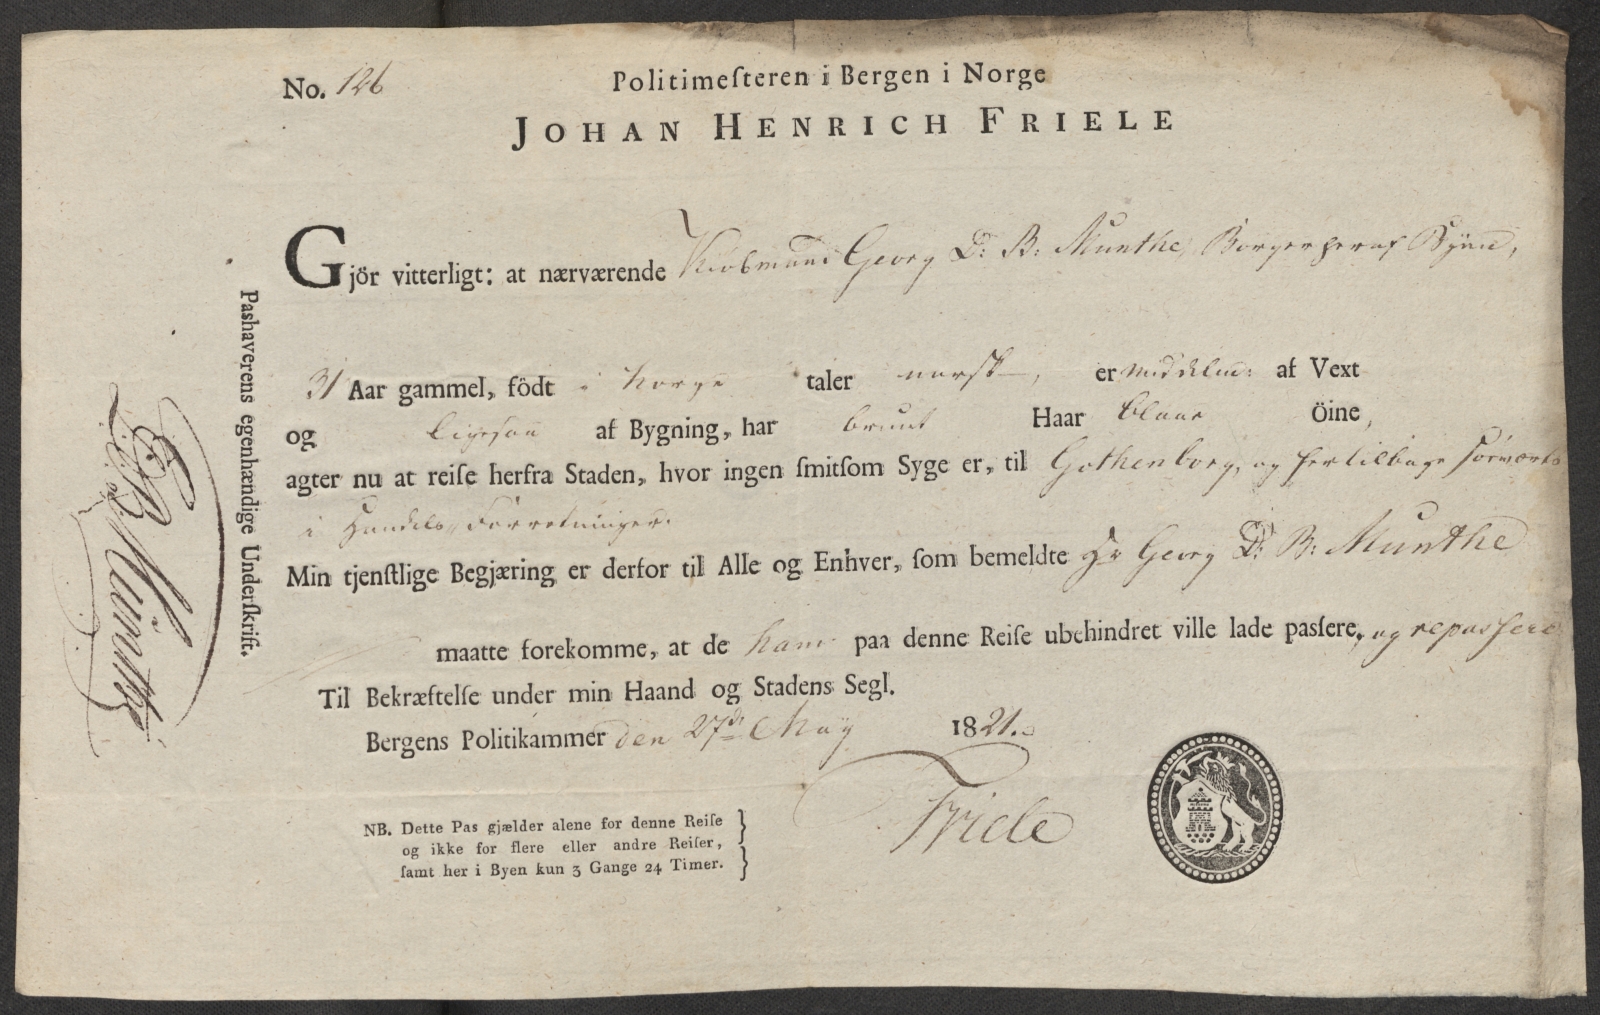 No. 126
Politimeſteren i Bergen i Norge
JOHAN HENRICH FRIELE
Gjör vitterligt: at nærværende Kiöbmand Georg D: B: Munthe, Borger heraf Byen,
31 Aar gammel, födt i Norge taler norsk, er middelm: af Vext
og ligesaa af Bygning, har brunt Haar blaae Öine,
agter nu at reiſe herfra Staden, hvor ingen ſmitſom Syge er, til Gothenborg, og her tilbage söeværts
i Handels Forretninger.
Min tjenſtlige Begjæring er derfor til Alle og Enhver, ſom bemeldte Hr Georg D: B: Munthe
maatte forekomme, at de ham paa denne Reiſe ubehindret ville lade paſſere, og repassere
Til Bekræftelſe under min Haand og Stadens Segl.
Bergens Politikammer den 27de May 1821.
Friele
NB. Dette Pas gjælder alene for denne Reiſe
og ikke for flere eller andre Reiſer,
ſamt her i Byen kun 3 Gange 24 Timer.
Pashaverens egenhændige Underſkrift.
GDB Münthe